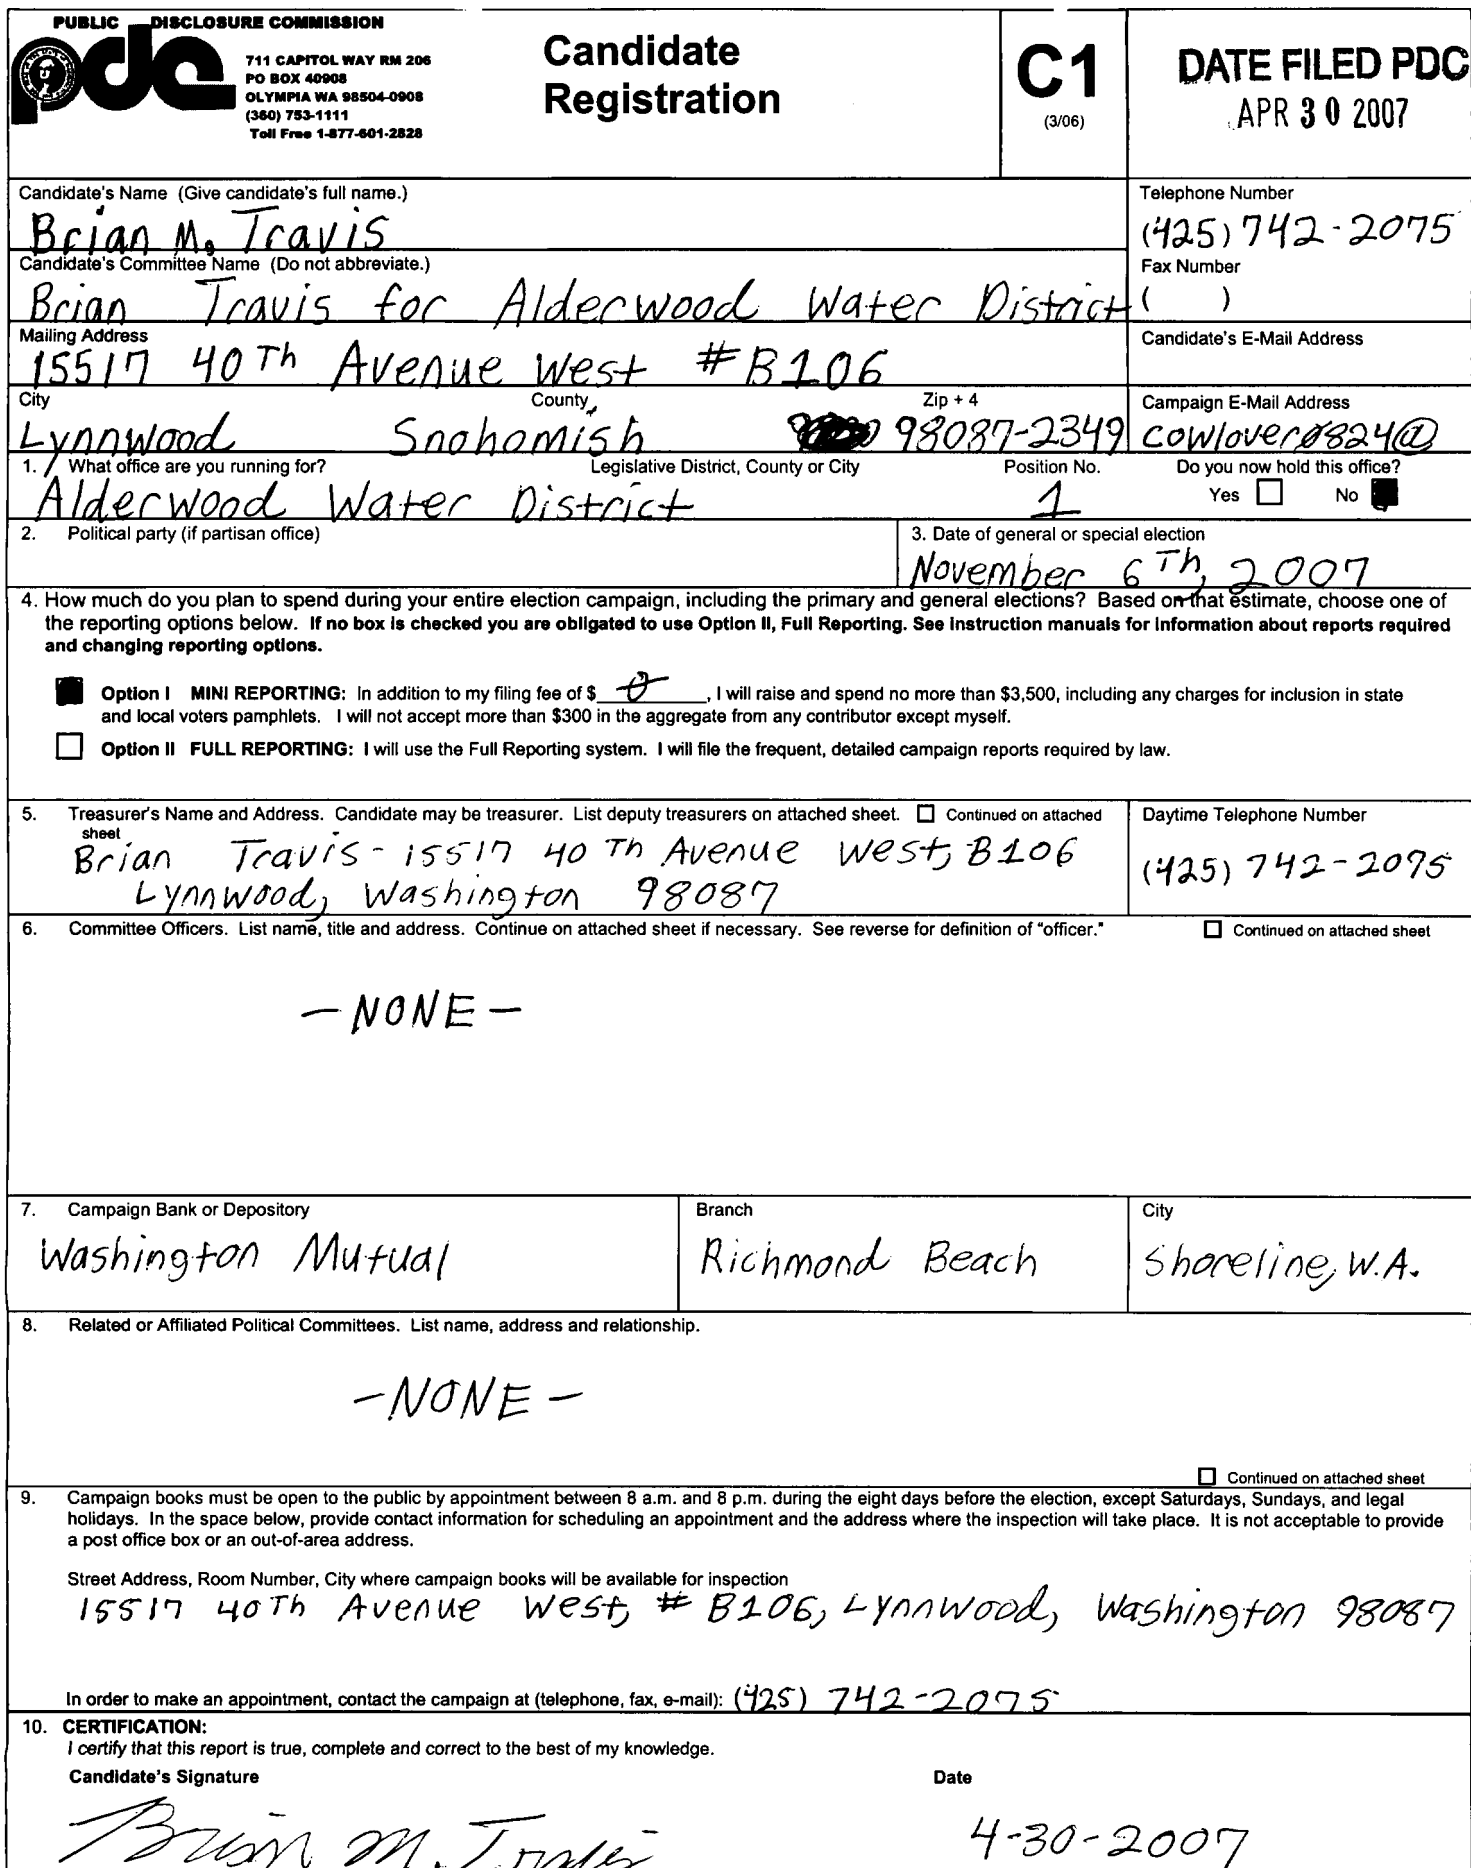 PUBLIC DISCLOSURE COMMISSION
pdc
711 CAPITOL WAY RM 206
PO BOX 40908
OLYMPIA WA 98504-0908
(360) 753-1111
Toll Free 1-877-601-2828
Candidate
Registration
C1
(3/06)
DATE FILED PDC
APR 30 2007
Candidate's Name (Give candidate's full name.)
Brian M. Travis
Telephone Number
(425) 742-2075
Candidate's Committee Name (Do not abbreviate.)
Brian Travis for Alderwood Water District
Fax Number
( )
Mailing Address
15517 40Th Avenue West #B106
Candidate's E-Mail Address
City County Zip + 4
Lynnwood Snohomish 98087-2349
Campaign E-Mail Address
cowlover0824@
1. What office are you running for? Legislative District, County or City Position No. Do you now hold this office?
Alderwood Water District 1 Yes No
2. Political party (if partisan office)
3. Date of general or special election
November 6Th, 2007
4. How much do you plan to spend during your entire election campaign, including the primary and general elections? Based on that estimate, choose one of
the reporting options below. If no box is checked you are obligated to use Option II, Full Reporting. See instruction manuals for information about reports required
and changing reporting options.
Option I MINI REPORTING: In addition to my filing fee of $ 0 , I will raise and spend no more than $3,500, including any charges for inclusion in state
and local voters pamphlets. I will not accept more than $300 in the aggregate from any contributor except myself.
Option II FULL REPORTING: I will use the Full Reporting system. I will file the frequent, detailed campaign reports required by law.
5. Treasurer's Name and Address. Candidate may be treasurer. List deputy treasurers on attached sheet. Continued on attached
sheet
Brian Travis - 15517 40Th Avenue West, B106
Lynnwood, Washington 98087
Daytime Telephone Number
(425) 742-2075
6. Committee Officers. List name, title and address. Continue on attached sheet if necessary. See reverse for definition of "officer." Continued on attached sheet
-NONE-
7. Campaign Bank or Depository
Washington Mutual
Branch
Richmond Beach
City
Shoreline, W.A.
8. Related or Affiliated Political Committees. List name, address and relationship.
-NONE-
Continued on attached sheet
9. Campaign books must be open to the public by appointment between 8 a.m. and 8 p.m. during the eight days before the election, except Saturdays, Sundays, and legal
holidays. In the space below, provide contact information for scheduling an appointment and the address where the inspection will take place. It is not acceptable to provide
a post office box or an out-of-area address.
Street Address, Room Number, City where campaign books will be available for inspection
15517 40Th Avenue West, # B106, Lynnwood, Washington 98087
In order to make an appointment, contact the campaign at (telephone, fax, e-mail): (425) 742-2075
10. CERTIFICATION:
I certify that this report is true, complete and correct to the best of my knowledge.
Candidate's Signature Date
Brian M. Travis 4-30-2007